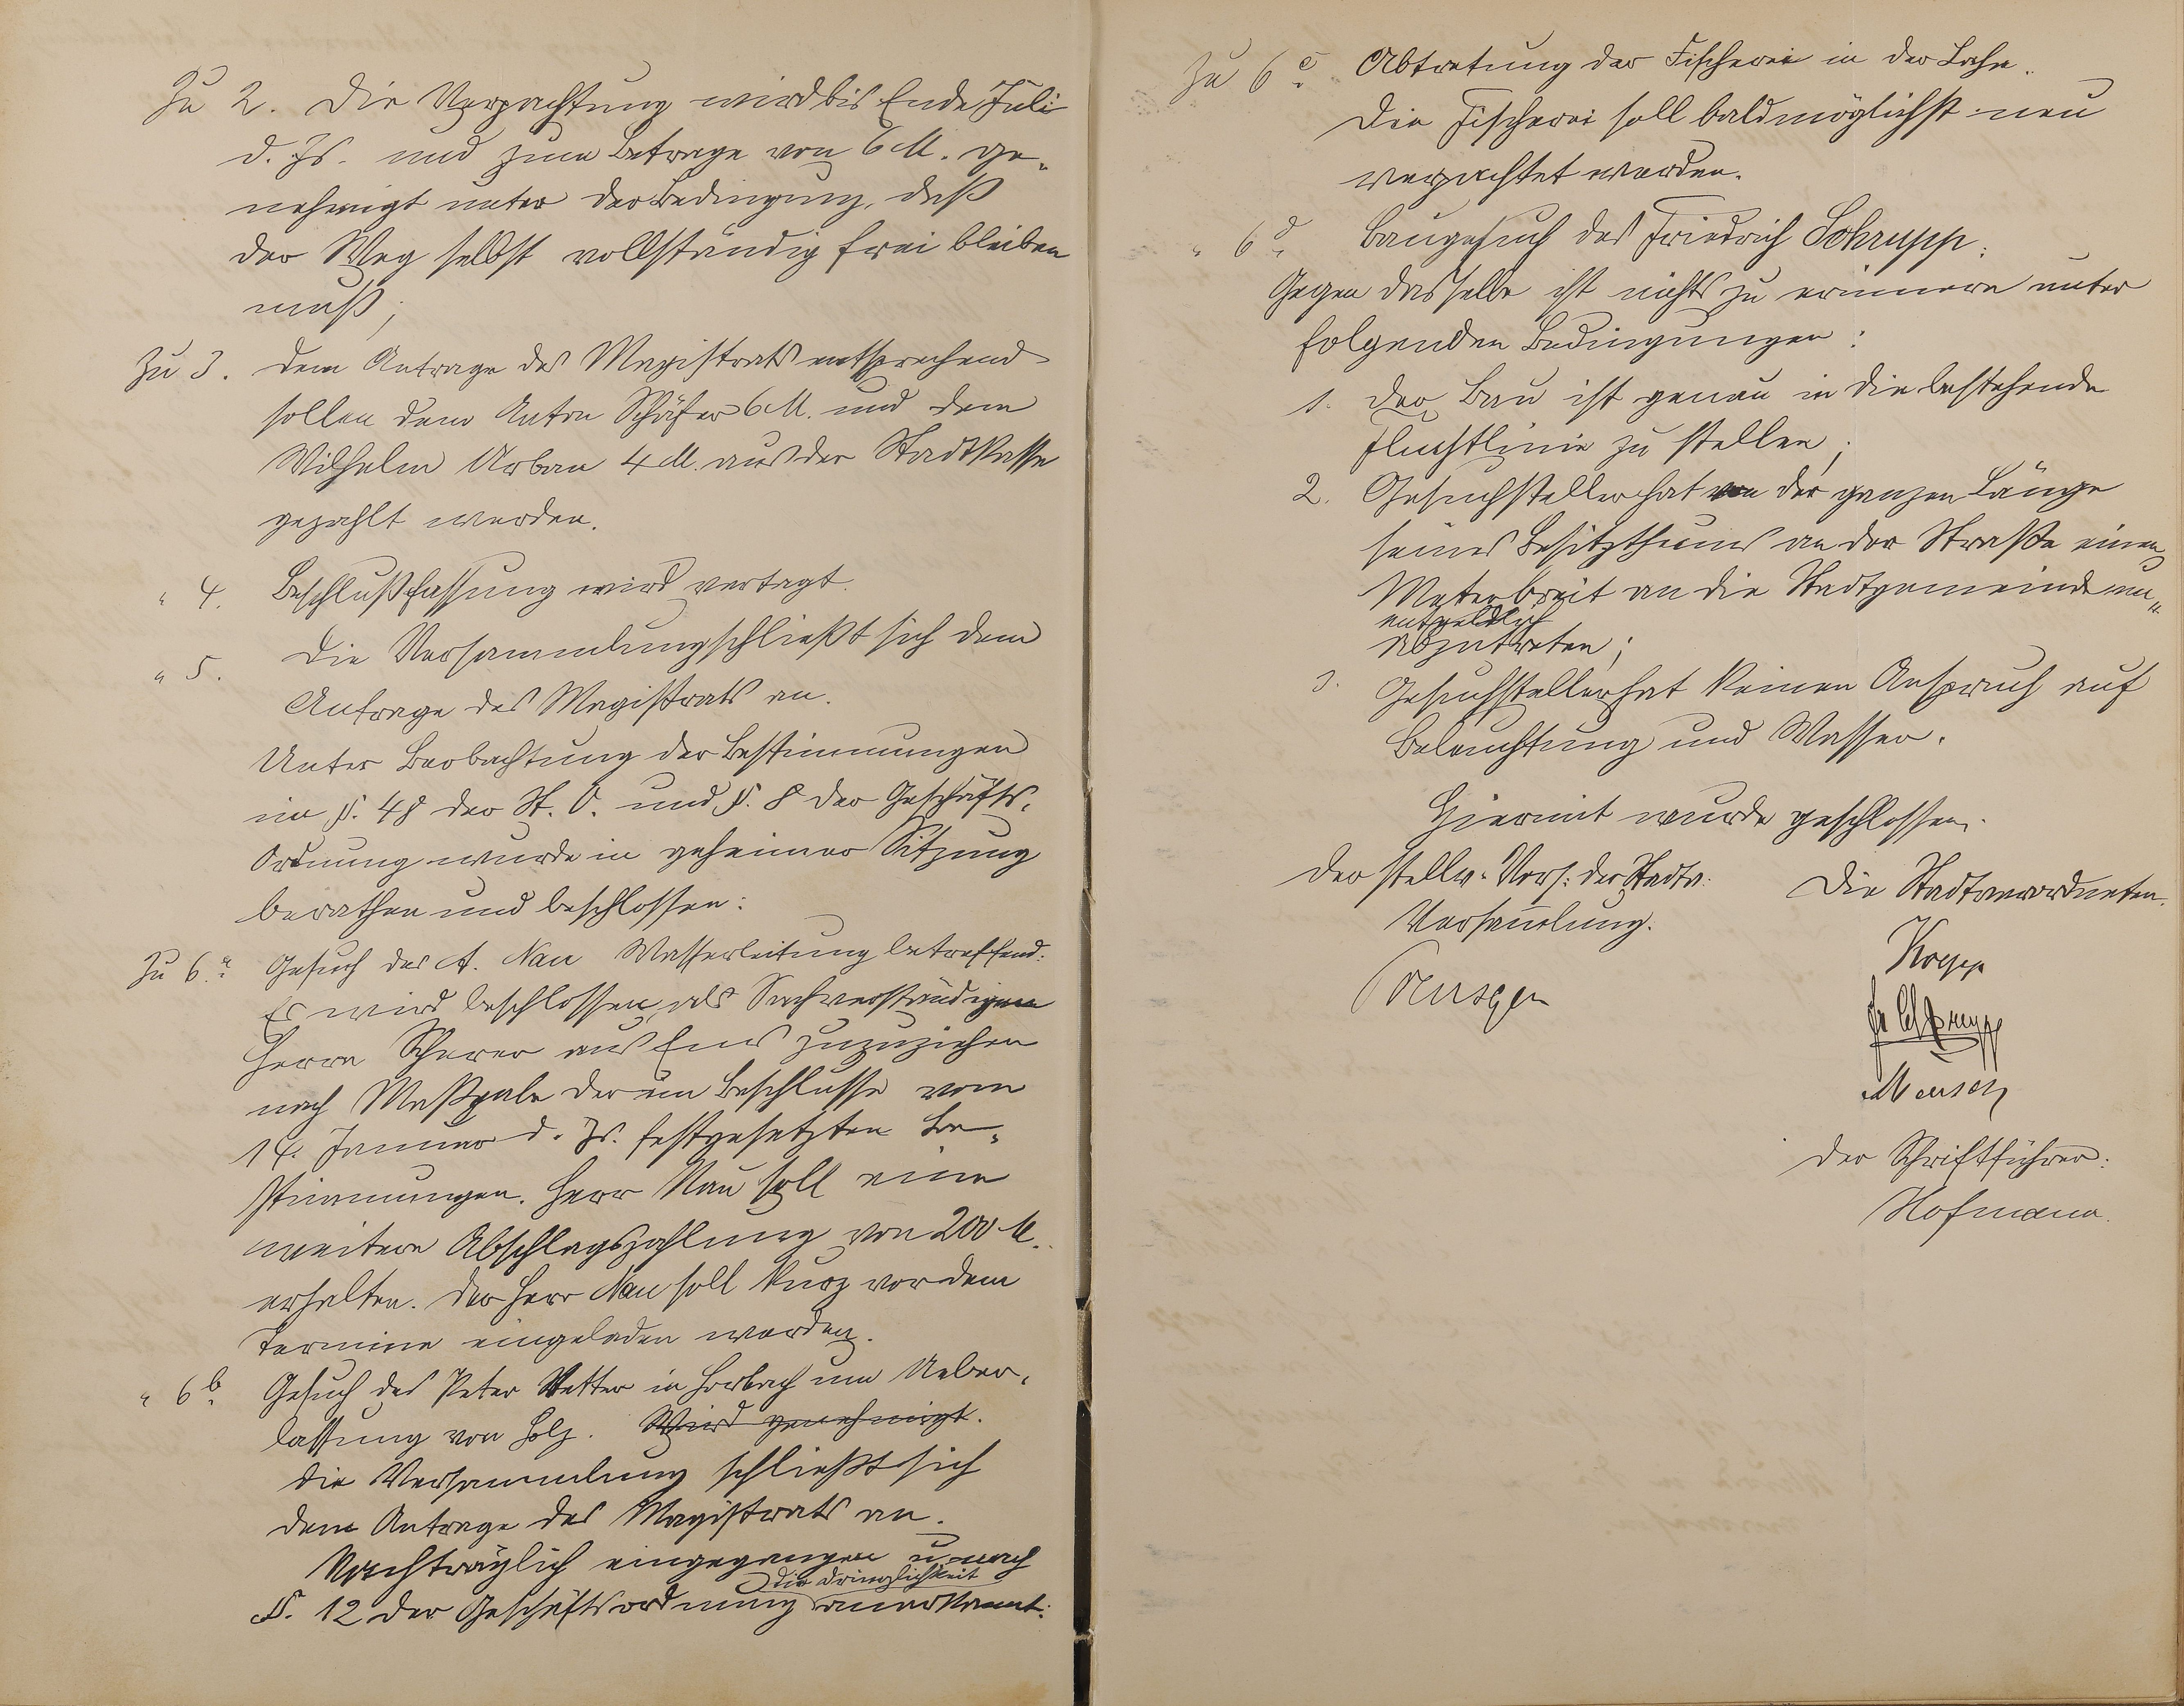 Zu 2. Die Verpachtung wird bis Ende Juli
d. Js. und zum Betrage von 6 M. ge-
nehmigt unter der Bedingung, daß
der Weg selbst vollständig frei bleiben
muß;
Zu 3. Dem Antrage des Magistrats entsprechend
sollen dem Anton Schäfer 6 M. und dem
Wilhelm Urban 4 M. aus der Stadtkasse
gezahlt werden.
" 4. Beschlußfassung wird vertagt.
" 5. Die Versammlung schließt sich dem
Antrage des Magistrats an.
Unter Beobachtung der Bestimmungen
im §. 48 der St. O. und §. 8 der Geschäfts-
Ordnung wurde in geheimer Sitzung
berathen und beschlossen:
Zu 6.a Gesuch des A. Nau Wasserleitung betreffend.
Es wird beschlossen, als Sachverständigen
Herrn Scherer aus Ems zuzuziehen
nach Maßgabe der im Beschlusse vom
14. Januar d. Js. festgesetzten Be-
stimmungen. Herr Nau soll eine
weitere Abschlagszahlung von 200 M.
erhalten. Der Herr Nau soll kurz vor dem
Termine eingeladen werden.
" 6b Gesuch des Peter Vetter in Horbach um Ueber-
lassung von Holz. Wird genehmigt.
Die Versammlung schließt sich
dem Antrage des Magistrats an.
Nachträglich eingegangen u. nach
die Dringlichkeit
§. 12 der Geschäftsordnung anerkannt:
Zu 6c Abtretung der Fischerei in der Lahn.
Die Fischerei soll baldmöglichst neu
verpachtet werden.
" 6d Baugesuch des Friedrich Schrupp.
Gegen dasselbe ist nichts zu erinnern unter
folgenden Bedingungen:
1. Der Bau ist genau in die bestehende
Fluchtlinie zu stellen;
2. Gesuchsteller hat von der ganzen Länge
seines Besitzthums an der Straße einen
Meter breit an die Stadtgemeinde un-
entgeldlich
abzutreten;
3. Gesuchsteller hat keinen Anspruch auf
Beleuchtung und Wasser.
Hiermit wurde geschlossen.
Der stellv. Vors. der Stadtv.
Versammlung.
Die Stadtverordneten.
Kopp
Fr Schrupp
Der Schriftführer:
Hofmann.